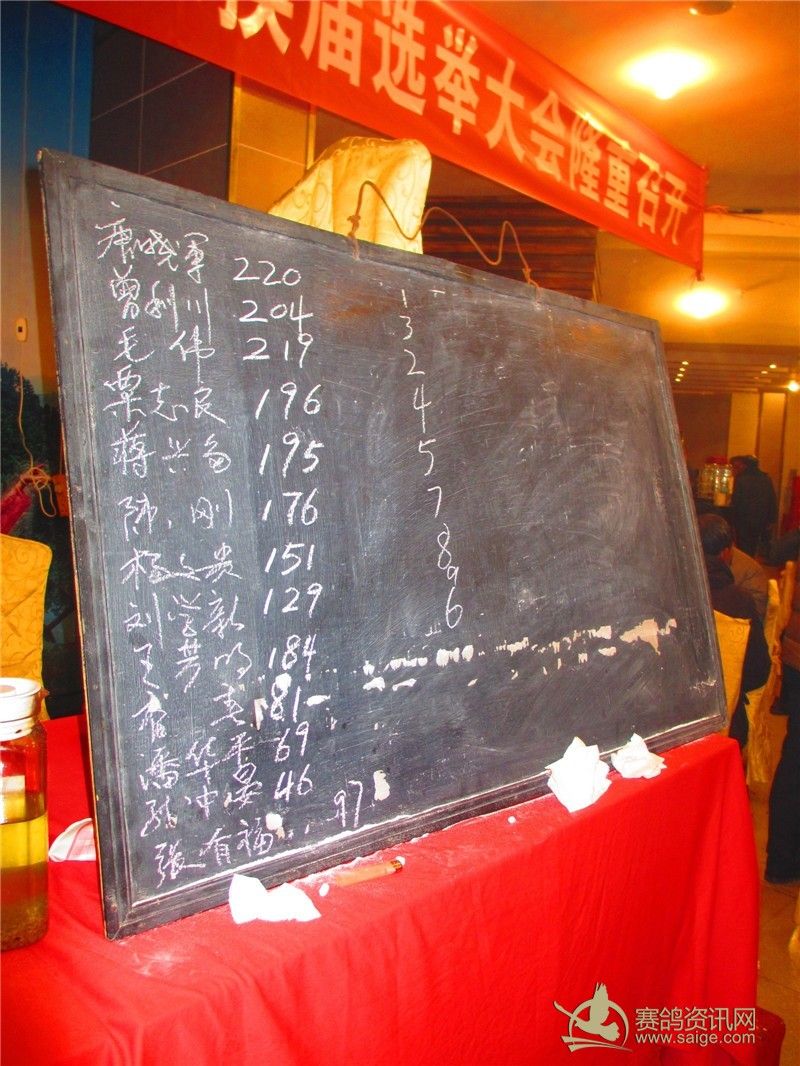 换届选举大会隆重召开
唐晓军 220 1
曾利川 204 3
毛伟 219 2
栗志良 196 4
蒋兴多 195 5
陈刚 176 7
杨文贵 151 8
刘学新 129 9
王 明 184 6
81
华平 69
冲晏 46
張有福 97
赛鸽资讯网
www.saige.com